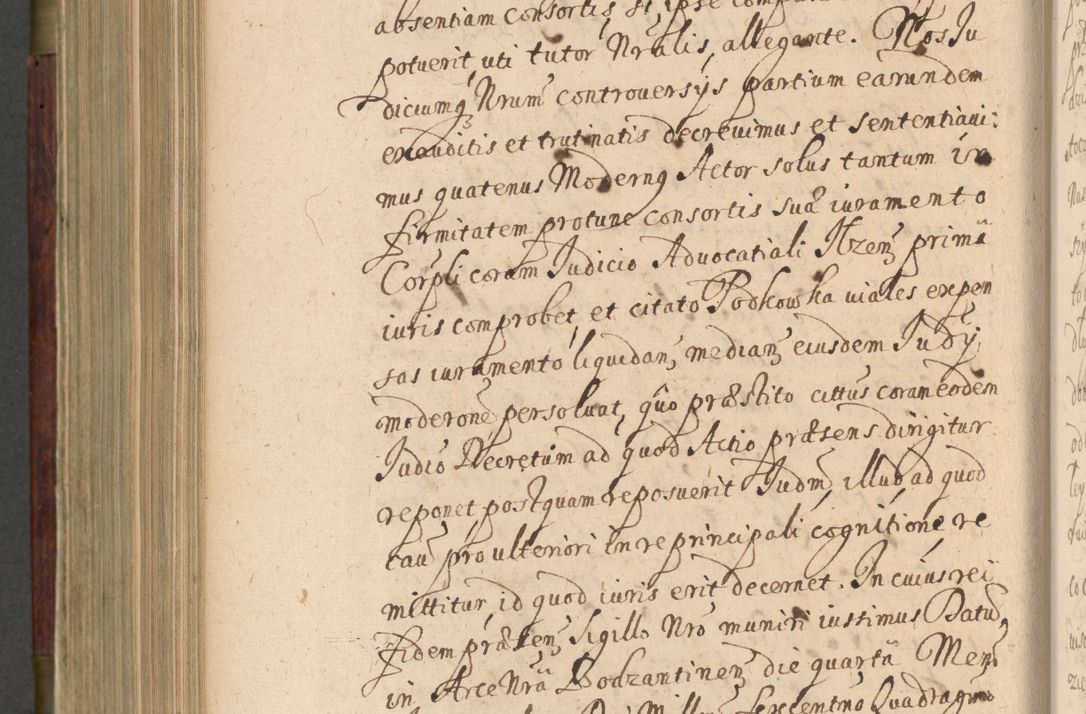 absentiam consortis si ipse
potuerit, uti tutor Nrãlis, allegante. Nos Iu
diciumq₃ Nrum controversijs partium earundem
exauditis et trutinatis decrevimus et sententiavi:
mus quatenus Modernq Actor solus tantum in
firmitatem protunc consortis suæ iuramento
Corpli coram Iudicio Advocatiali Ilzen₃ prima
iuris comprobet, et citato Podkowka viales expen
sas iuramento liquidan₃ median₃ eiusdem Iudÿ
moderone persolvat, quo præstito cittus coram eodem
Iudio Decretum ad quod Actio præsens dirigitur
reponet postquam reposuerit Iudm̃ illud ad quod
tau pro ulteriori in re principali cognitione re
mittitur, id quod iuris erit decernet. In cuius rei
fidem præsen₃ Sigillo Nro muniri iussimus Datu
in Arce Nrã Bodzantinen₃ die quarta Mens
Millmo Sexcentmo Quadragmo